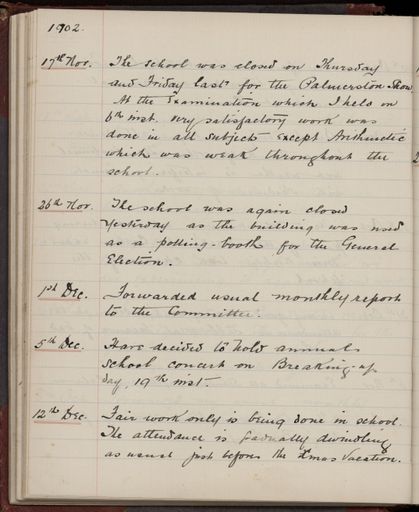 1902.
17th Nov. The school was closed on Thursday
and Friday last for the Palmerston Show.
At the Examination which I held on
6th inst. very satisfactory work was
done in all subjects except Arithmetic
which was weak throughout the
school.
26th Nov. The school was again closed
yesterday as the building was used
as a polling-booth for the General
Election.
1st Dec. Forwarded usual monthly report
to the Committee.
5th Dec. Have decided to hold annual
school concert on Breaking-up
day, 19th inst.
12th Dec. Fair work only is being done in school.
The attendance is gradually dwindling
as usual just before the Xmas Vacation.